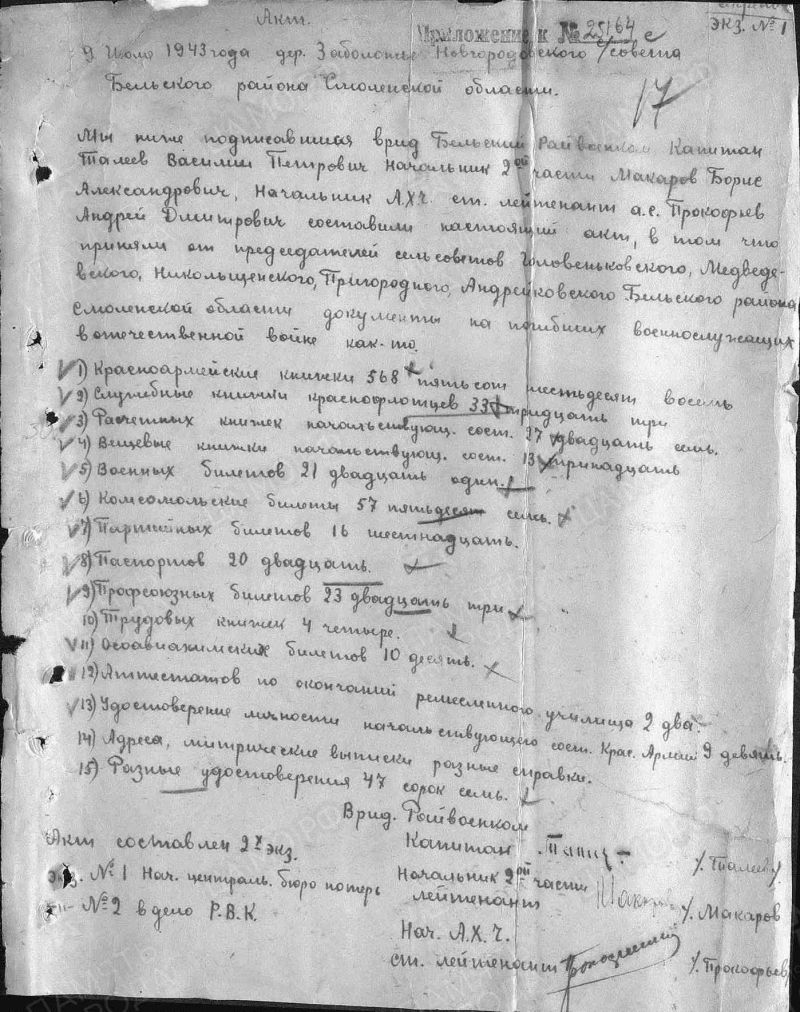 Акт.
Приложение к № 25164 с
экз. № 1
9 Июля 1943 года дер. Заболотье Новгородовского с/совета
Бельского района Смоленской области.
17
Мы ниже подписавшиая врид Бельский Райвоенком Капитан
Талеев Василий Петрович Начальник 2ой части Макаров Борис
Александрович, Начальник А.Х.Ч. ст. лейтенант а.с. Прокофьев
Андрей Дмитрович составили настоящий акт, в том что
приняли от председателей сельсоветов Головеньковского, Медведе-
вского, Никольщенского, Пригородного, Андрейковского Бельского района
Смоленской области документы на погибших военнослужащих
в отечественной войне как-то.
1) Красноармейские книжки 568 пятьсот шестьдесят восемь
2) Служебные книжки краснофлотцев 33 тридцать три
3) Расчетных книжек начальствующ. сост. 27 двадцать семь.
4) Вещевые книжки начальствующ. сост. 13 тринадцать
5) Военных билетов 21 двадцать один.
6) Комсомольские билеты 57 пятьдесят семь.
7) Партийных билетов 16 шестнадцать.
8) Паспортов 20 двадцать.
9) Профсоюзных билетов 23 двадцать три
10) Трудовых книжек 4 четыре.
11) Осоавиахимских билетов 10 десять.
12) Аттестатов по окончании ремесленного училища 2 два.
13) Удостоверение личности начальствующего сост. Крас. Армии 9 девять.
14) Адреса, митрические выписки разные справки.
15) Разные удостоверения 47 сорок семь.
Врид. Райвоенком
Акт составлен 2х экз.
Капитан /Талеев/.
экз. № 1 Нач. централь. бюро потерь
Начальник 2ой части
лейтенант /. Макаров
№ 2 в дело Р.В.К.
Нач. А.Х.Ч.
ст. лейтенант /. Прокофьев/